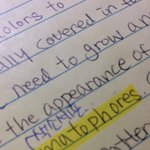 colors to
ally covered in t
- need to grow an
the appearance of
matophores.